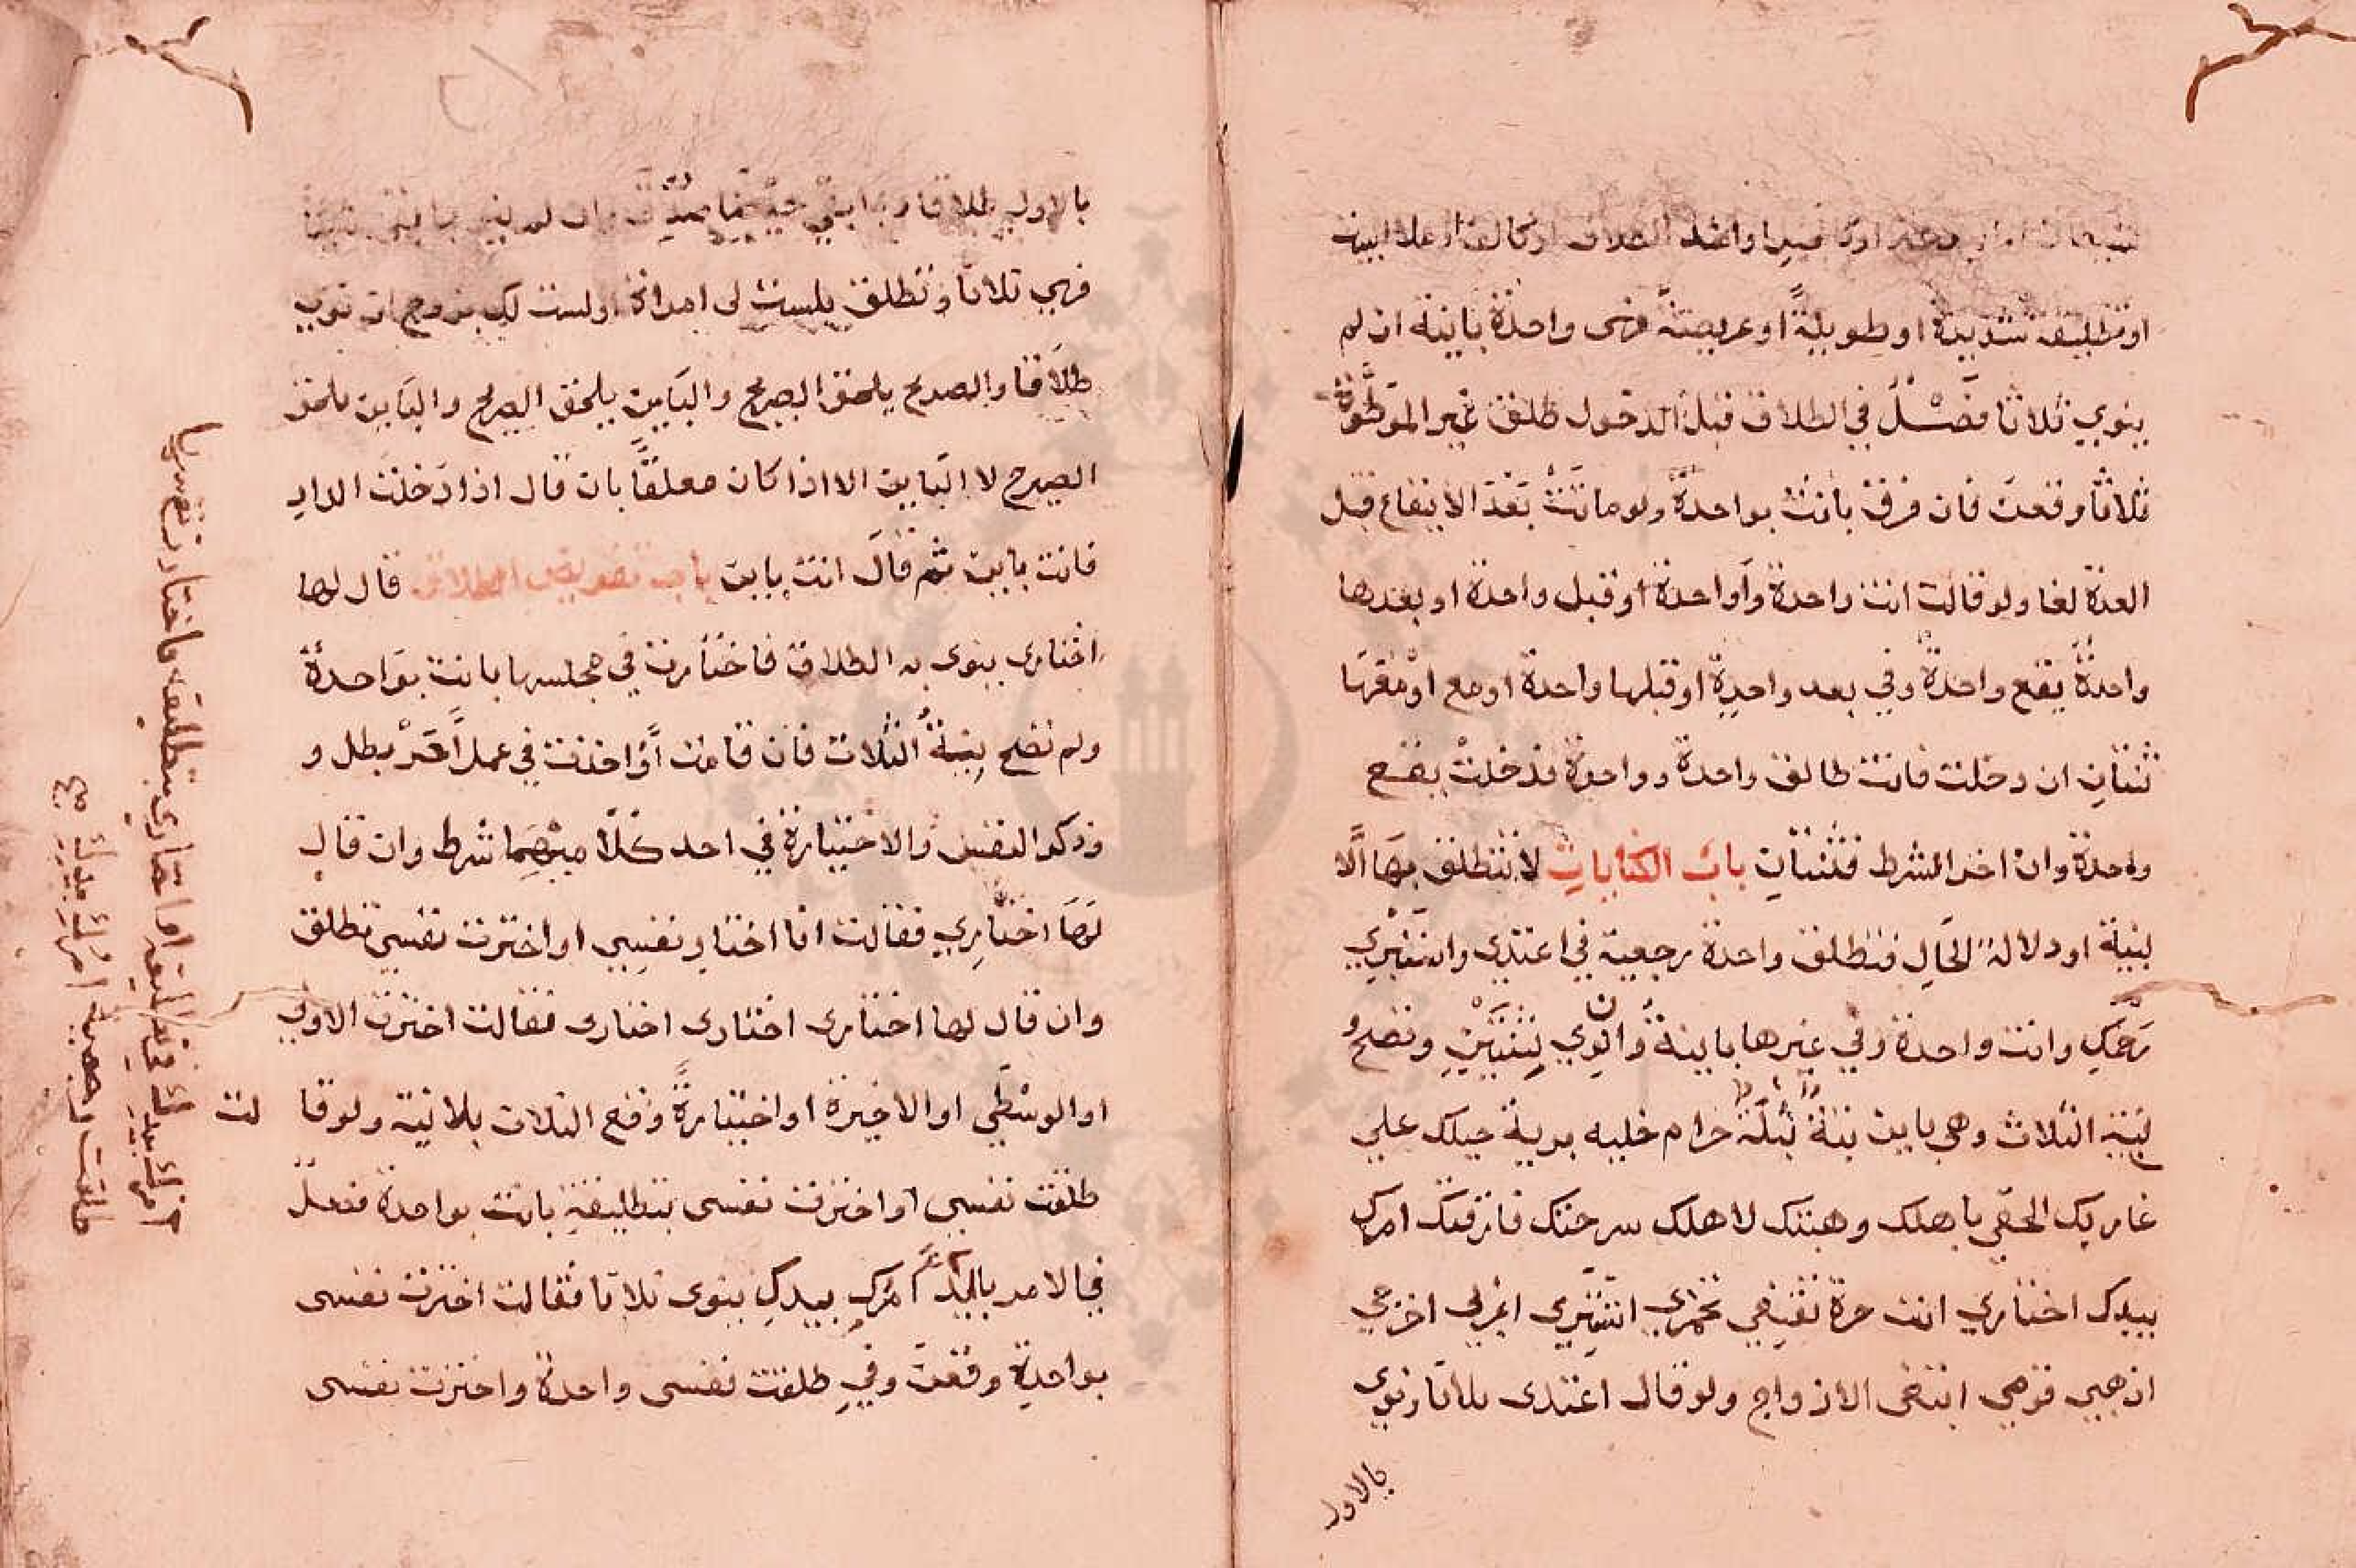 او كالف او ملا البيت
او تطليقة شديدة او طويلة او عريضة فهى واحدة باينة ان لم
ينوي ثلاثا فَصْلٌ في الطلاق قبل الدخول طلق غير الموطوة
ثلاثا وقعت فان فرق بانت بواحدة ولو ماتت بعد الايقاع قبل
العدة لغا ولو قالت انت واحدة وواحدة او قبل واحدة او بعدها
واحدة يقع واحدة وفي بعد واحدة او قبلها واحدة او مع او معها
ثنتان ان دخلت فانت طالق واحدة وواحدة فدخلت يقع
واحدة وان اخر الشرط فثنتان باب الكنايات لا تطلق بها الا
بنية او دلالة الحال فتطلق واحدة رجعية في اعتدي واستبري
رحمك وانت واحدة وفي غيرها باينة وان نوي ثنتين وتصح
نية الثلاث وهي باين بتة بتلة حرام خليه برية حبلك علي
غاربك الحقي باهلك وهبتك لاهلك سرحتك فارقتك امرك
بيدك اختاري انت حرة تقنعي تخمري استتري اغربي اخرجي
اذهبي قومي ابتغى الازواج ولو قال اعتدى ثلاثا ونوي
بالاول
بالاول طلاقا وبما بقي حيضا صدق وان لم ينو بما بقى شيئا
فهي ثلاثا وتطلق بلست لى امراة او لست لك بزوج ان نوي
طلاقا والصريح يلحق الصريح والباين يلحق الصريح والباين يلحق
الصريح لا الباين الا اذا كان معلقا بان قال اذا دخلت الدار
فانت باين ثم قال انت باين باب تفويض الطلاق قال لها
اختارى ينوى به الطلاق فاختارت في مجلسها بانت بواحدة
ولم تصح بنية الثلاث فان قامت او اخذت في عمل آخر بطل و
وذكر النفس والاختيارة في احد كلاميهما شرط وان قال
لها اختاري فقالت انا اختار نفسي او اخترت نفسي تطلق
وان قال لها اختارى اختارى اختارى فقالت اخترت الاولي
او الوسطي او الاخيرة او اختيارة وقع الثلاث بلا نية ولو قا لت
طلقت نفسي او اخترت نفسى بتطليقة بانت بواحدة فصل
في الامر باليد امرك بيدك ينوى ثلاثا فقالت اخترت نفسى
بواحدة وقعن وفي طلقت نفسى واحدة واخترت نفسى
امرك بيدك في تطليقة او اختاري تطليقة فاختارت نفسها
طلقت رجعية امرك بيدك